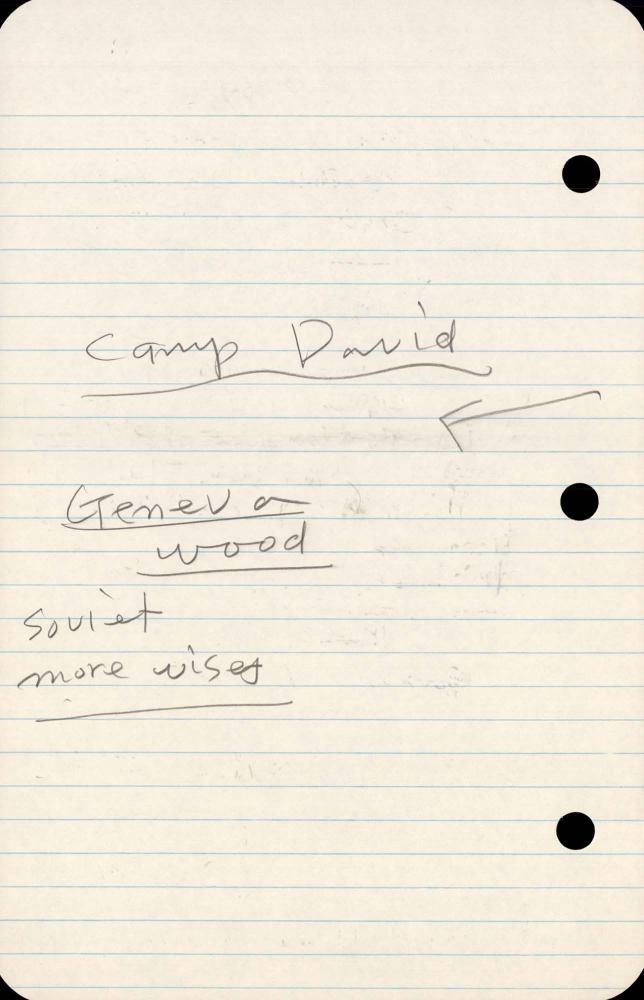 Camp David
Geneva
wood
Soviet
more